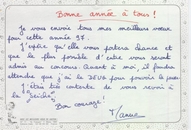 Bonne année à tous !
Je vous envoie tous mes meilleurs vœux
pour cette année 97.
J'espère qu'elle vous portera chance et
que le plus possible d'entre vous seront
admis au concours. Quant à moi il faudra
attendre que j'ai le DEUG pour pouvoir le passer.
J'étais très contente de vous revoir à
la
Bon courage !